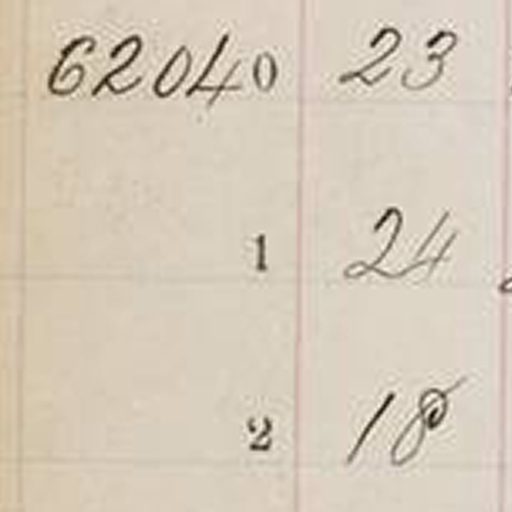 62040 23
1 24
2 18